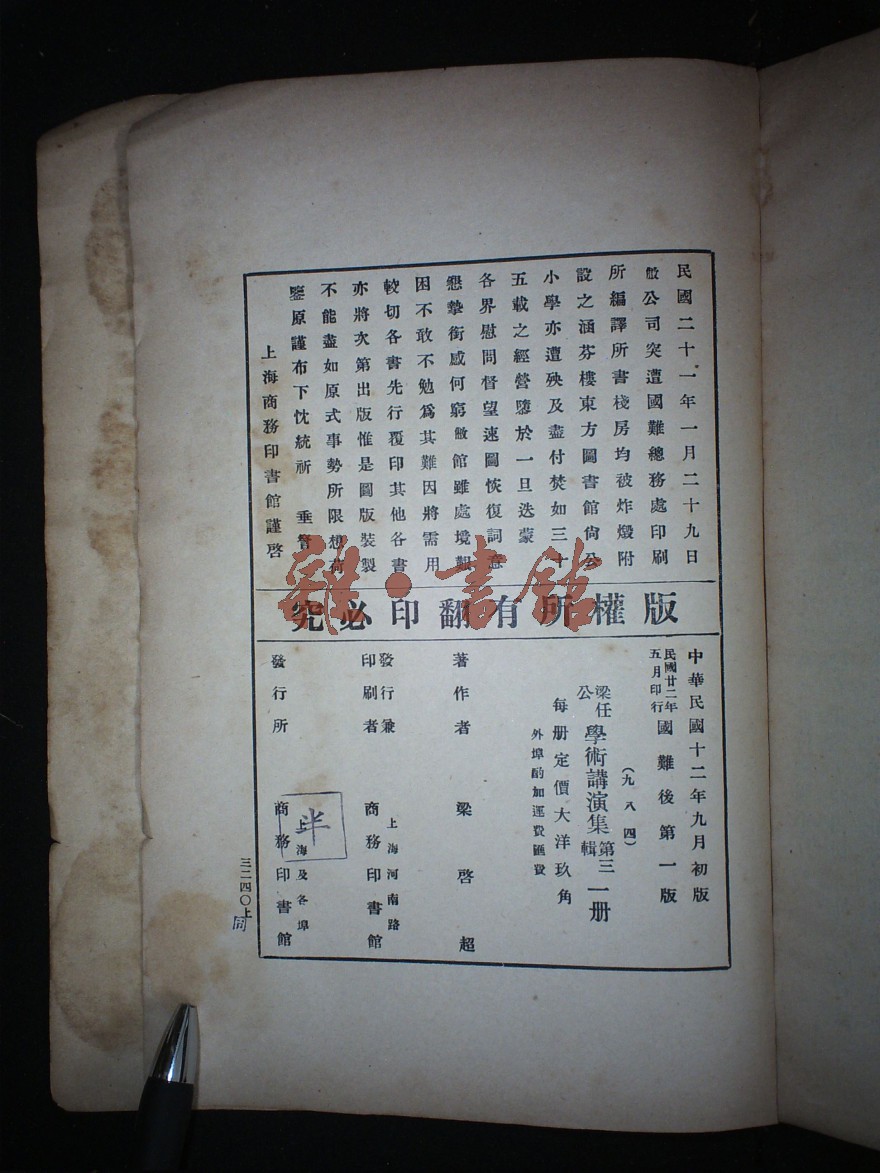 民國二十一年一月二十九日
敝公司突遭國難總務處印刷
所編譯所書棧房均被炸燬附
設之涵芬樓東方圖書館尙公
小學亦遭殃及盡付焚如三十
五載之經營隳於一旦迭蒙
各界慰問督望速圖恢復詞意
懇摯銜感何窮敝館雖處境艱
困不敢不勉爲其難因將需用
較切各書先行覆印其他各書
亦將次第出版惟是圖版裝製
不能盡如原式事勢所限想荷
鑒原謹布下忱統祈 垂詧
上海商務印書館謹啓
版權所有翻印必究
中華民國十二年九月初版
民國廿二年五月印行 國難後第一版
(九八四)
梁任公 學術講演集 第三輯 一册
每册定價大洋玖角
外埠酌加運費匯費
著作者 梁啓超
發行兼印刷者 上海河南路 商務印書館
發行所 上海及各埠 商務印書館
半
三二四〇上
同
雜·書館